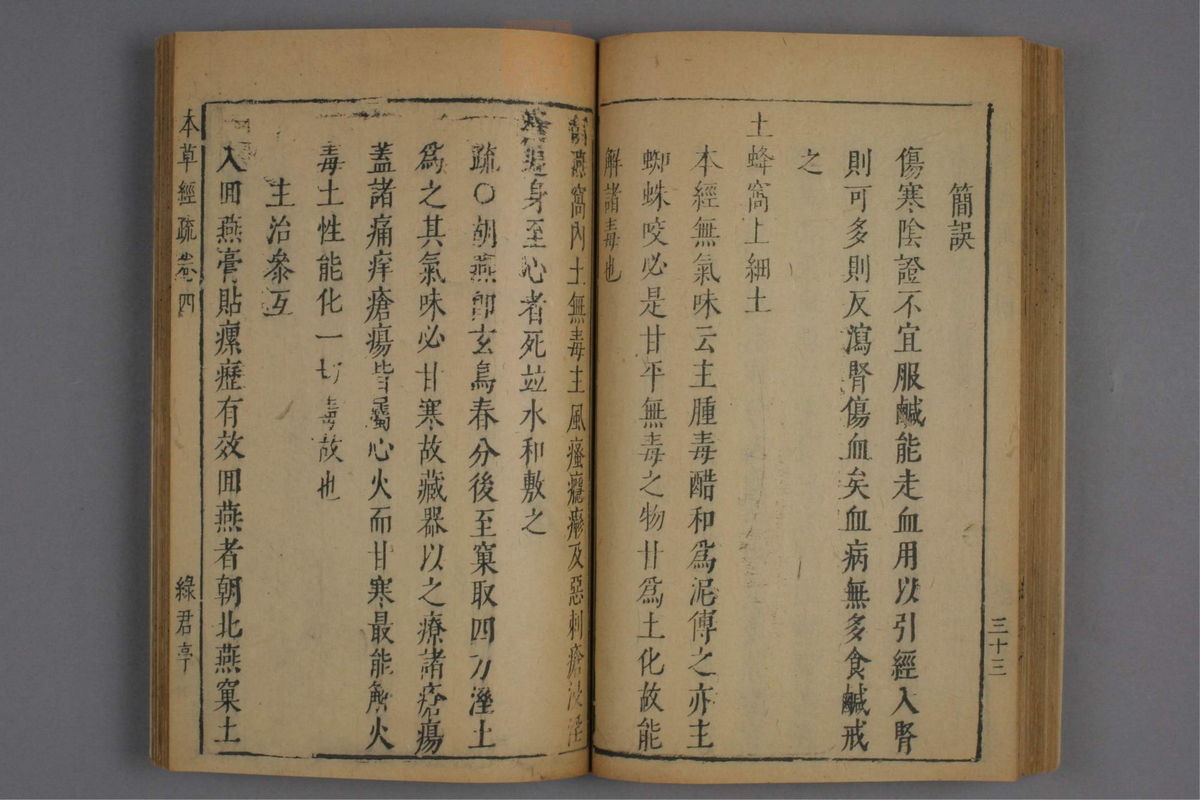 簡誤
傷寒陰證不宜服鹹能走血用以引經入腎
則可多則反瀉腎傷血矣血病無多食鹹戒
之
土蜂窩上細土
本經無氣味云主腫毒醋和爲泥傅之亦主
蜘蛛咬必是甘平無毒之物甘爲土化故能
解諸毒也
三十三
燕窩內土無毒主風瘙癮疹及惡刺瘡浸淫
遶身至心者死並水和敷之
疏○朝燕卽玄鳥春分後至窠取四方溼土
爲之其氣味必甘寒故藏器以之療諸瘡瘍
蓋諸痛痒瘡瘍皆屬心火而甘寒最能解火
毒土性能化一切毒故也
主治叅互
入囬燕膏貼瘰癧有效囬燕者朝北燕窠土
本草經疏 卷四
綠君亭